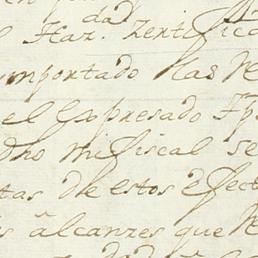 da
Har. Zertifica
importado las
el expresado
dho mi fiscal se
tas de estos efect
alcanzes que